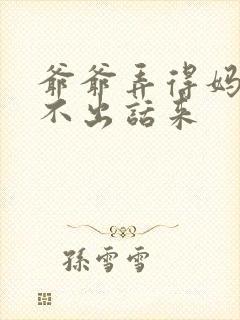 爷爷弄得妈
不出話来
孫雪雪